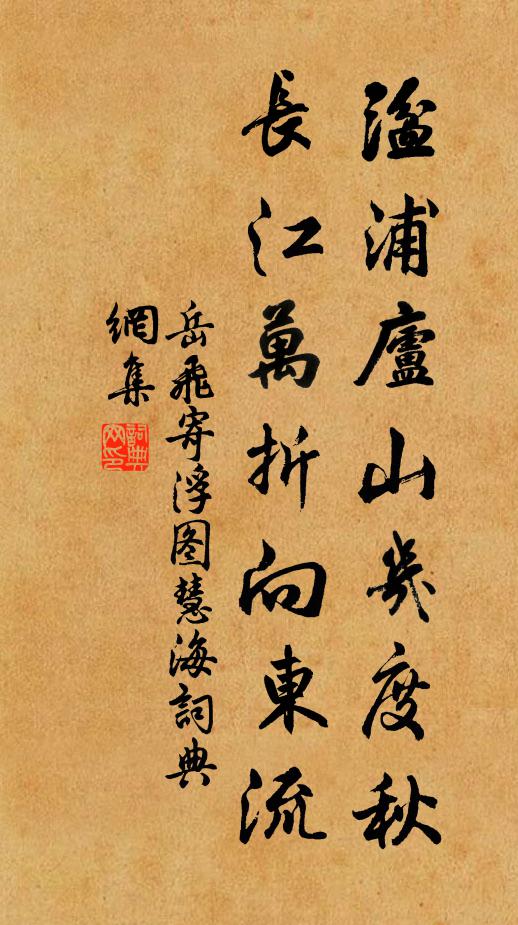 湓浦廬山幾度秋
長江萬折向東流
岳飛寄浮图慧海詞典
網集
詞典
网印